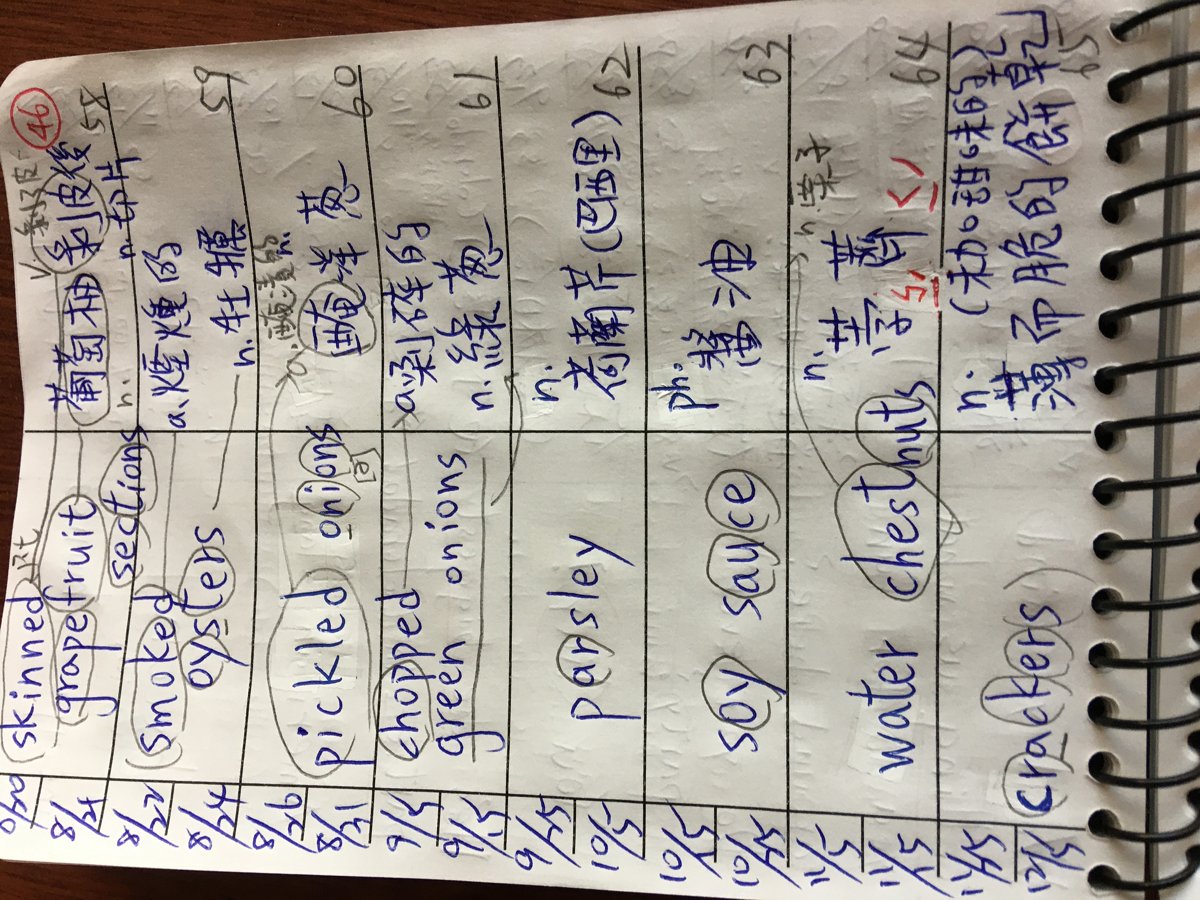 46
8/21
skinned
grapefruit
sections
v 剝皮
葡萄柚 剝皮後
n. n. 切片
58
8/22
8/24
smoked
oysters
a. 煙燻的
n. 牡蠣
59
8/26
8/31
pickled onions
a. 醃漬的 n.
醃洋蔥
60
9/5
9/15
chopped
green onions
a. 剁碎的
n. 綠蔥
61
9/25
10/5
parsley
n. 荷蘭芹(巴西里)
62
10/15
10/25
soy sauce
ph. 醬油
63
11/5
11/15
water chestnuts
n. 栗子
n. 荸薺
ㄅㄧˊ ㄑㄧˊ
64
11/25
12/5
crackers
n. (未加甜味的)
薄而脆的餅乾
65